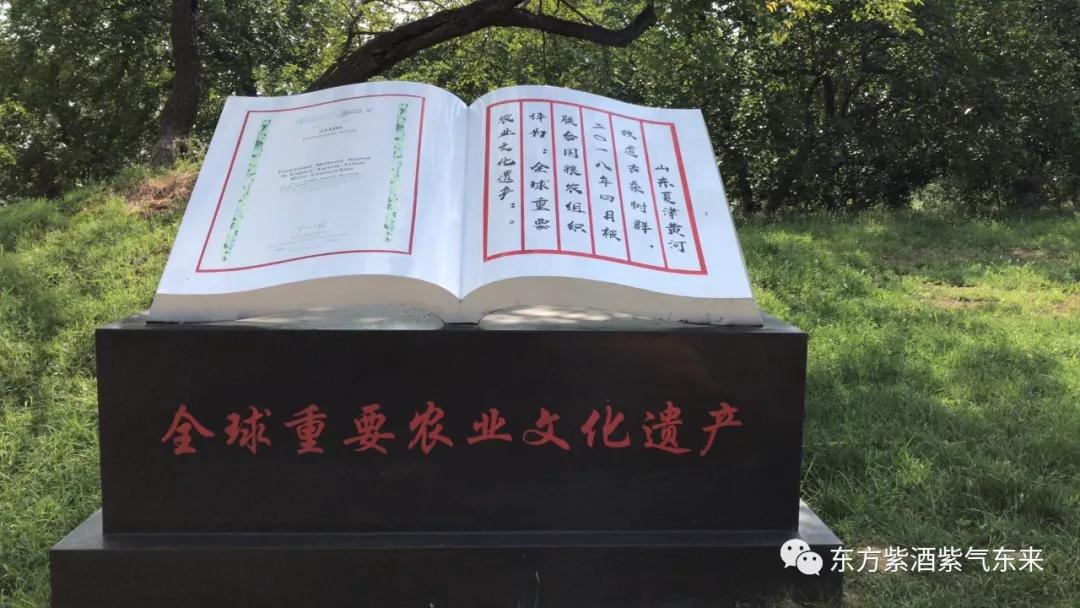 GIAHS
Traditional Mulberry System
in Xiajin's Ancient Yellow
River Course, China
山东夏津黄河
故道古桑树群，
二〇一八年四月被
联合国粮农组织
评为：全球重要
农业文化遗产：。
全球重要农业文化遗产
东方紫酒紫气东来